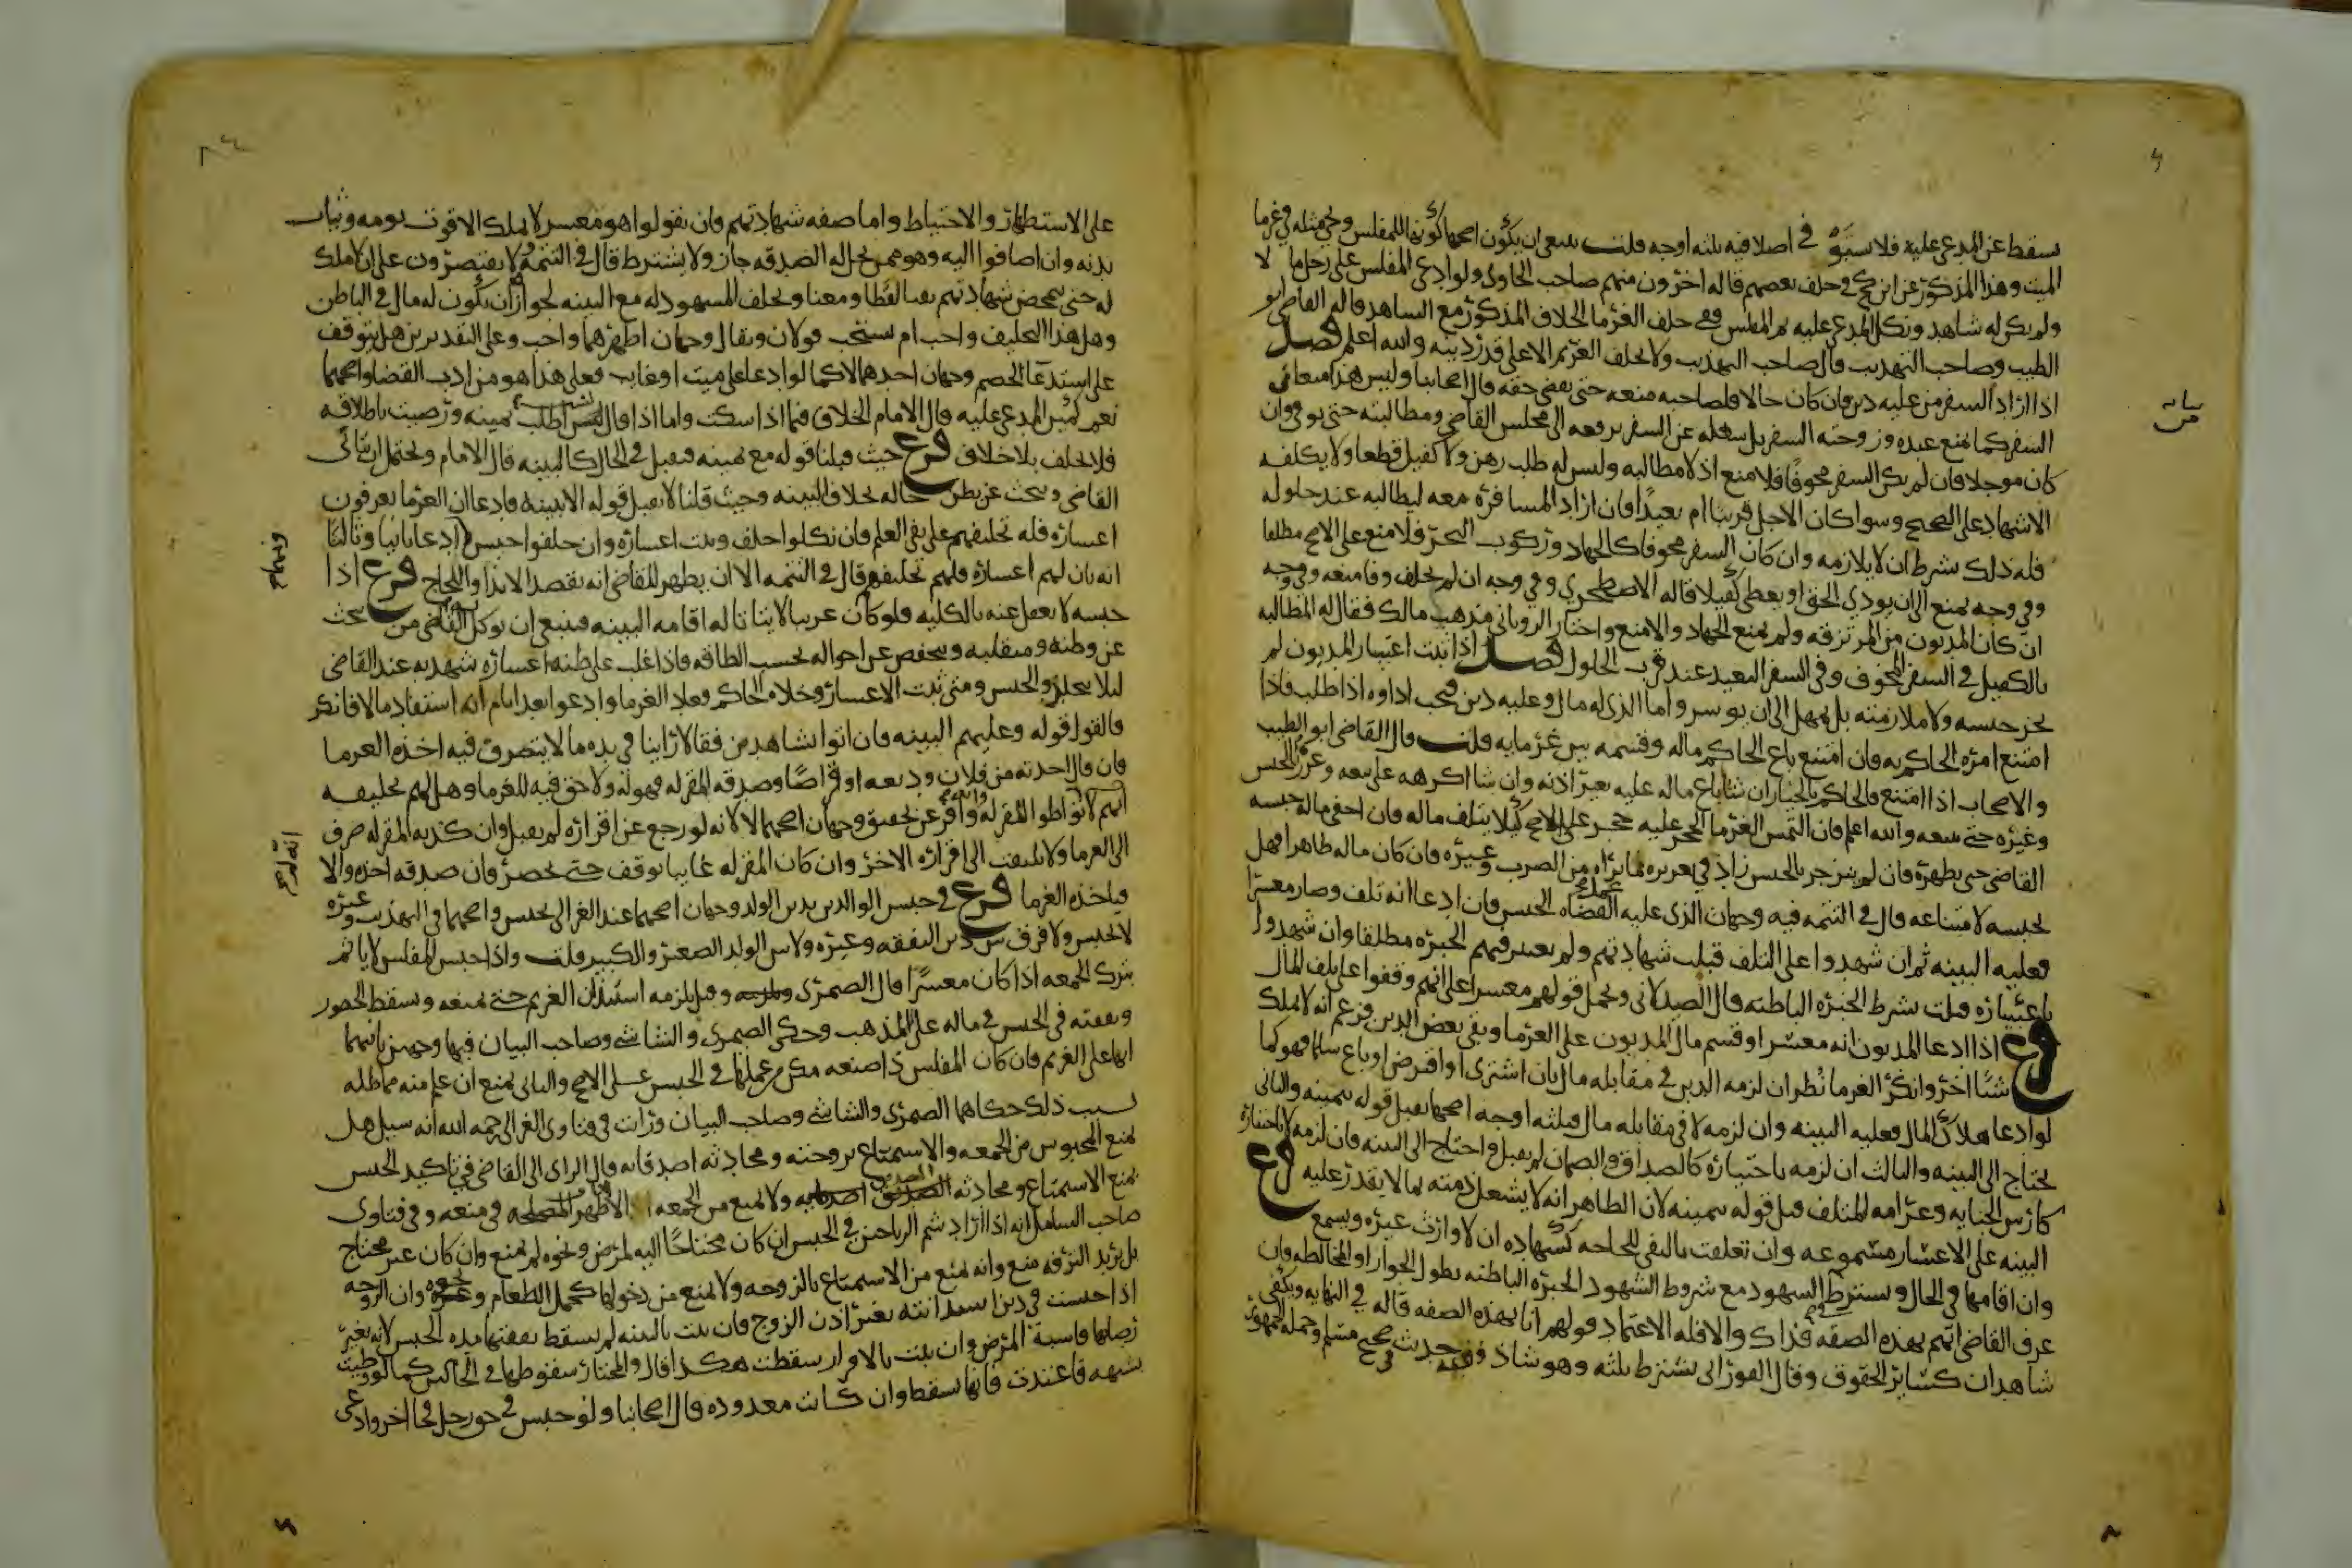 سقط عن المدعى عليه فلا ستوفى اصلا فيه ثلثه اوجه قلت ينبغى ان يكون اصحها كونها للمفلس ويجى مثله فى غرما
الميت وهذا المذكور عن ابن كج فى حلف بعضهم قاله اخرون منهم صاحب الحاوى ولو ادعى المفلس على رجل مالا
ولم يكن له شاهد ونكل المدعى عليه ثم المفلس ففى حلف الغرما الخلاف المذكور مع الشاهد قاله القاضى ابو
الطيب وصاحب التهذيب قال صاحب التهذيب ولا يحلف الغريم الا على قدر دينه والله اعلم فصل
اذا اراد السفر من عليه دين فان كان حالا فلصاحبه منعه حتى يقضى حقه قال اصحابنا وليس هذا منعا فى
السفر كما يمنع عبده وزوجته السفر بل يشغله عن السفر برفعه الى مجلس القاضى ومطالبته حتى يوفى وان
كان موجلا فان لم يكن السفر مخوفا فلا منع اذ لا مطالبه وليس له طلب رهن ولا كفيل قطعا ولا يكلفه
الاشهاد على الصحيح وسوا كان الاجل قريبا ام بعيدا فان اراد المسافره معه ليطالبه عند حلوله
فله ذلك بشرط ان لا يلازمه وان كان السفر مخوفا كالجهاد وركوب البحر فلا منع على الاصح مطلقا
وفى وجه يمنع الى ان يودى الحق او يعطى كفيلا قاله الاصطخرى وفى وجه ان لم يخلف وفا منعه وفى وجه
ان كان المديون من المرتزقه ولم يمنع الجهاد والا منع واختار الرويانى مذهب مالك فقال له المطالبه
بالكفيل فى السفر المخوف وفى السفر البعيد عند قرب الحلول فصل اذا ثبت اعسار المديون لم
يجز حبسه ولا ملازمته بل يمهل الى ان يوسر واما الذى له مال وعليه دين فيجب اداوه اذا طلب فاذا
امتنع امره الحاكم به فان امتنع باع الحاكم ماله وقسمه بين غرمايه قلت قال القاضى ابو الطيب
والاصحاب اذا امتنع فالحاكم بالخيار ان شا باع ماله عليه بغير اذنه وان شا اكرهه على بيعه وعزره بالحبس
وغيره حتى يبيعه والله اعلم فان التمس الغرما الحجر عليه حجر على الاصح كيلا يتلف ماله فان اخفى ماله حبسه
القاضى حتى يظهره فان لم ينزجر بالحبس زاد فى تعزيره بما يراه من الضرب وغيره فان كان ماله ظاهرا فهل
يحبسه لامتناعه قال فى التتمه فيه وجهان الذى عليه عمل القضاه الحبس فان ادعا انه تلف وصار معسرا
فعليه البينه ثم ان شهدوا على التلف قبلت شهادتهم ولم يعتبر فيهم الخبره مطلقا وان شهدوا
باعساره قبلت بشرط الخبره الباطنه قال الصيدلانى ويحمل قولهم معسر على انهم وقفوا على تلف المال
فرع اذا ادعا المديون انه معسر او قسم مال المديون على الغرما وبقى بعض الدين فزعم انه لا يملك
شيا اخر وانكر الغرما نظر ان لزمه الدين فى مقابله مال بان اشترى او اقترض او باع سلما فهو كما
لو ادعا هلاك المال فعليه البينه وان لزمه لا فى مقابله مال فثلثه اوجه اصحها يقبل قوله بيمينه والثانى
يحتاج الى البينه والثالث ان لزمه باختياره كالصداق والضمان لم يقبل واحتاج الى البينه فان لزمه لا باختياره
كارش الجنايه وغرامه المتلف قبل قوله بيمينه لان الظاهر انه لا يشغل ذمته بما لا يقدر عليه فرع
البينه على الاعسار مسموعه وان تعلقت بالنفى للحاجه كشهاده ان لا وارث غيره وتسمع
وان اقامها فى الحال ويشترط فى الشهود مع شروط الشهود الخبره الباطنه بطول الجوار او المخالطه وان
عرف القاضى انهم بهذه الصفه فذاك والا فله الاعتماد قولهم انا بهذه الصفه قاله فى النهايه ويكفى
شاهدان كساير الحقوق وقال الفورانى يشترط ثلثه وهو شاذ وفيه حديث صحيح فى مسلم وحمله الجمهور
بيانه من
على الاستظهار والاحتياط واما صفه شهادتهم فان يقولوا هو معسر لا يملك الا قوت يومه وثياب
بدنه وان اضافوا اليه وهو ممن تحل له الصدقه جاز ولا يشترط قال فى التتمه ولا يقتصرون على ان لا ملك
له حتى يتمحض شهادتهم نفيا لفظا ومعنا ويحلف المشهود له مع البينه لجواز ان يكون له مال فى الباطن
وهل هذا التحليف واجب ام مستحب قولان ويقال وجهان اظهرهما واجب وعلى التقديرين هل يتوقف
على استدعا الخصم وجهان احدهما لا كما لو ادعا على ميت او غايب فعلى هذا هو من ادب القضا واصحهما
نعم كيمين المدعى عليه قال الامام الخلاف فيما اذا سكت واما اذا قال لست اطلب يمينه ورضيت باطلاقه
فلا يحلف بلا خلاف فرع حيث قبلنا قوله مع يمينه فيقبل فى الحال كالبينه قال الامام ويحتمل ان يتانى
القاضى ويبحث عن باطن حاله بخلاف البينه وحيث قلنا لا يقبل قوله الا ببينه فادعا ان الغرما يعرفون
اعساره فله تحليفهم على نفى العلم فان نكلوا حلف وثبت اعساره وان حلفوا حبس وادعا ثانيا وثالثا
انه بان لهم اعساره فلهم تحليفهم قال فى التتمه الا ان يظهر للقاضى انه يقصد الايذا واللجاج فرع اذا
حبسه لا يغفل عنه بالكليه فلو كان غريبا لا يتاتا له اقامه البينه فينبغى ان يوكل القاضى من يبحث
عن وطنه ومنقلبه ويتفحص عن احواله بحسب الطاقه فاذا غلب على ظنه اعساره شهد به عند القاضى
ليلا يتخلد فى الحبس ومتى ثبت الاعسار وخلاه الحاكم فعاد الغرما وادعوا بعد ايام انه استفاد مالا فانكر
فالقول قوله وعليهم البينه فان اتوا بشاهدين فقالا راينا فى يده مالا يتصرف فيه اخذه الغرما
فان قال اخذته من فلان وديعه او قراضا وصدقه المقر له فهو له ولا حق فيه للغرما وهل لهم تحليفه
انهم لا تواطوا المقر له واقر عن تحقيق وجهان اصحهما لا لانه لو رجع عن اقراره لم يقبل وان كذبه المقر له صرف
الى الغرما ولا يلتفت الى اقراره الاخر وان كان المقر له غايبا توقف حتى يحضر فان صدقه اخذه والا
فياخذه الغرما فرع فى حبس الوالدين بدين الولد وجهان اصحهما عند الغزالى يحبس واصحهما فى التهذيب وغيره
لا يحبس ولا فرق بين دين النفقه وغيره ولا بين الولد الصغير والكبير قلت واذا حبس المفلس لا ياثم
بترك الجمعه اذا كان معسرا قال الصيمرى وقيل يلزمه استيذان الغريم حتى يمنعه ويسقط الحضور
ونفقته فى الحبس فى ماله على المذهب وحكى الصيمرى والشاشى وصاحب البيان فيها وجهين ثانيهما
انها على الغريم فان كان المفلس ذا صنعه مكن من عملها فى الحبس على الاصح والثانى يمنع ان علم منه مماطله
بسبب ذلك حكاهما الصيمرى والشاشى وصاحب البيان ورايت فى فتاوى الغزالى رحمه الله انه سيل هل
يمنع المحبوس من الجمعه والاستمتاع بزوجته ومحادثه اصدقايه قال الراى الى القاضى فى تاكيد الحبس
بمنع الاستمتاع ومحادثه الصديق ولا يمنع من الجمعه الا اذا ظهر المصلحه فى منعه وفى فتاوى
صاحب الشامل انه اذا اراد شم الرياحين فى الحبس ان كان محتاجا اليه لمرض ونحوه لم يمنع وان كان غير محتاج
بل يريد الترفه منع وانه يمنع من الاستمتاع بالزوجه ولا يمنع من دخولها لحمل الطعام ونحوه وان الزوجه
اذا حبست فى دين استدانته بغير اذن الزوج فان ثبت بالبينه لم يسقط نفقتها مده الحبس لانه بغير
رضاها فاشبه المرض وان ثبت بالاقرار سقطت هكذا قال والمختار سقوطها فى الحالين كما لو وطيت
بشبهه فاعتدت فانها تسقط وان كانت معذوره قال اصحابنا ولو حبس فى حق رجل فجا اخر وادعى
انه لم